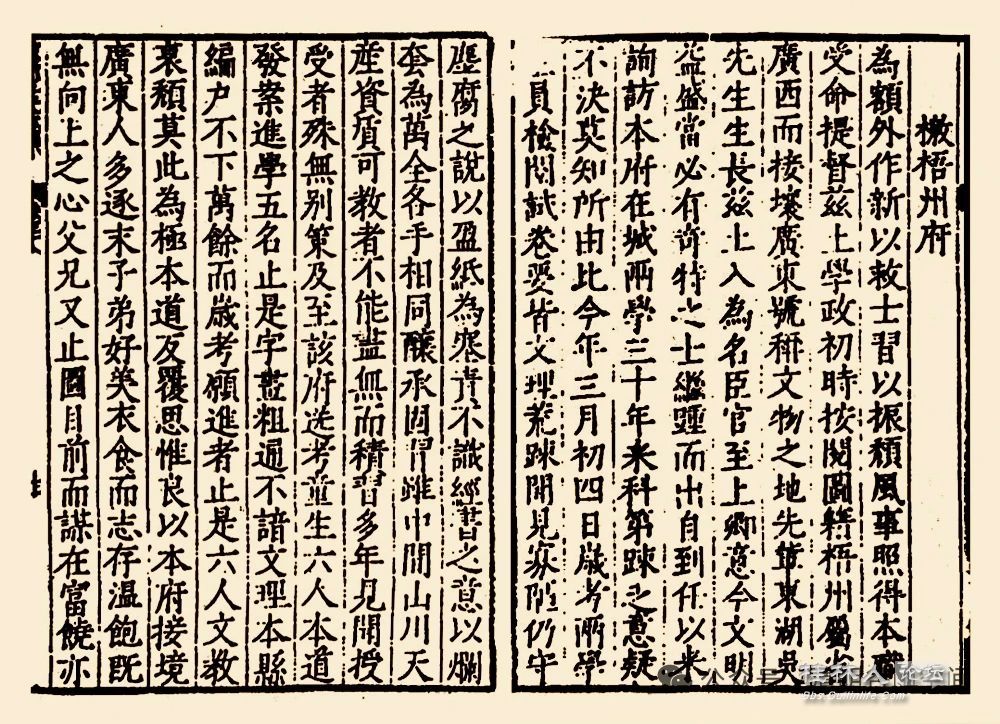 檄梧州府
為額外作新以救士習以振頹風事照得本職
受命提督兹土學政初時按閱圖籍梧州屬
廣西而接壤廣東號稱文物之地先軰東湖吳
先生生長兹土入為名臣官至上卿意今文明
益盛當必有竒特之士繼踵而出自到任以来
詢訪本府在城兩學三十年来科第踈之意疑
不决莫知所由比今年三月初四日歲考兩學
員檢閱試卷要皆文理荒踈聞見寡陋仍守
塵腐之說以盈紙為不識經書之意以爛
套為萬全各手相同釀承固習雖中間山川天
産資質可教者不能盡無而積習多年見聞授
受者殊無别策及至該府送考童生六人本道
發案進學五名止是字藍粗通不諳文理本縣
編户不下萬餘而歲考願進者止是六人文教
衰頹莫此為極本道反覆思惟良以本府接境
廣東人多逐末子弟好美衣食而志存温飽既
無向上之心父兄又止圖目前而謀在富饒亦
桂林人论坛
Bbs.Guilinlife.Com